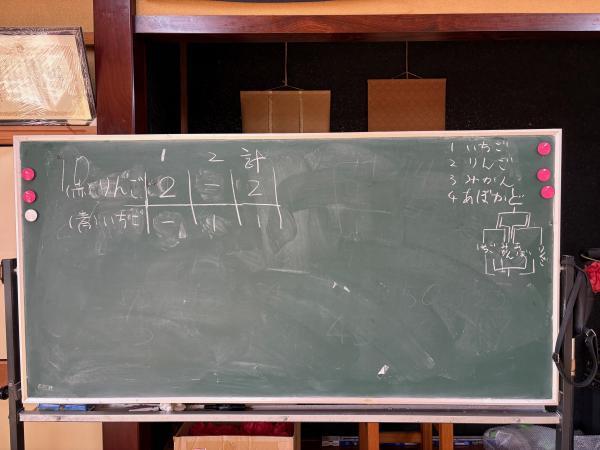 1 2 計
(赤)りんご 2 = 2
(青)いちご - 1 1
1 いちご
2 りんご
3 みかん
4 あぼかど
いちご みかん あぼ りんご